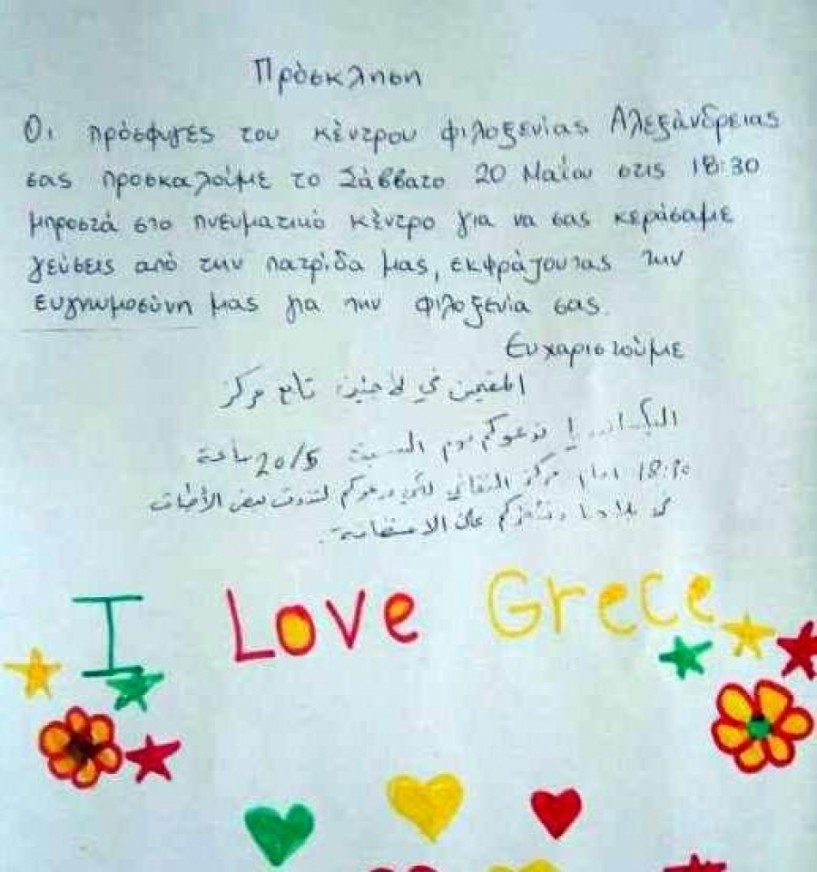 Πρόσκληση
Οι πρόσφυγες του κέντρου φιλοξενίας Αλεξάνδρειας
σας προσκαλούμε το Σάββατο 20 Μαίου στις 18:30
μπροστά στο πνευματικό κέντρο για να σας κεράσαμε
γεύσεις από την πατρίδα μας, εκφράζοντας την
ευγνωμοσύνη μας για την φιλοξενία σας.
Ευχαριστούμε
المقيمين في لاجئين تابع مركز
ندعوكم يوم السبت 20/5 ساعة
18:30 امام مركز الثقافي لتذوق بعض الأطباق
على الاستضافة.
I Love Grece